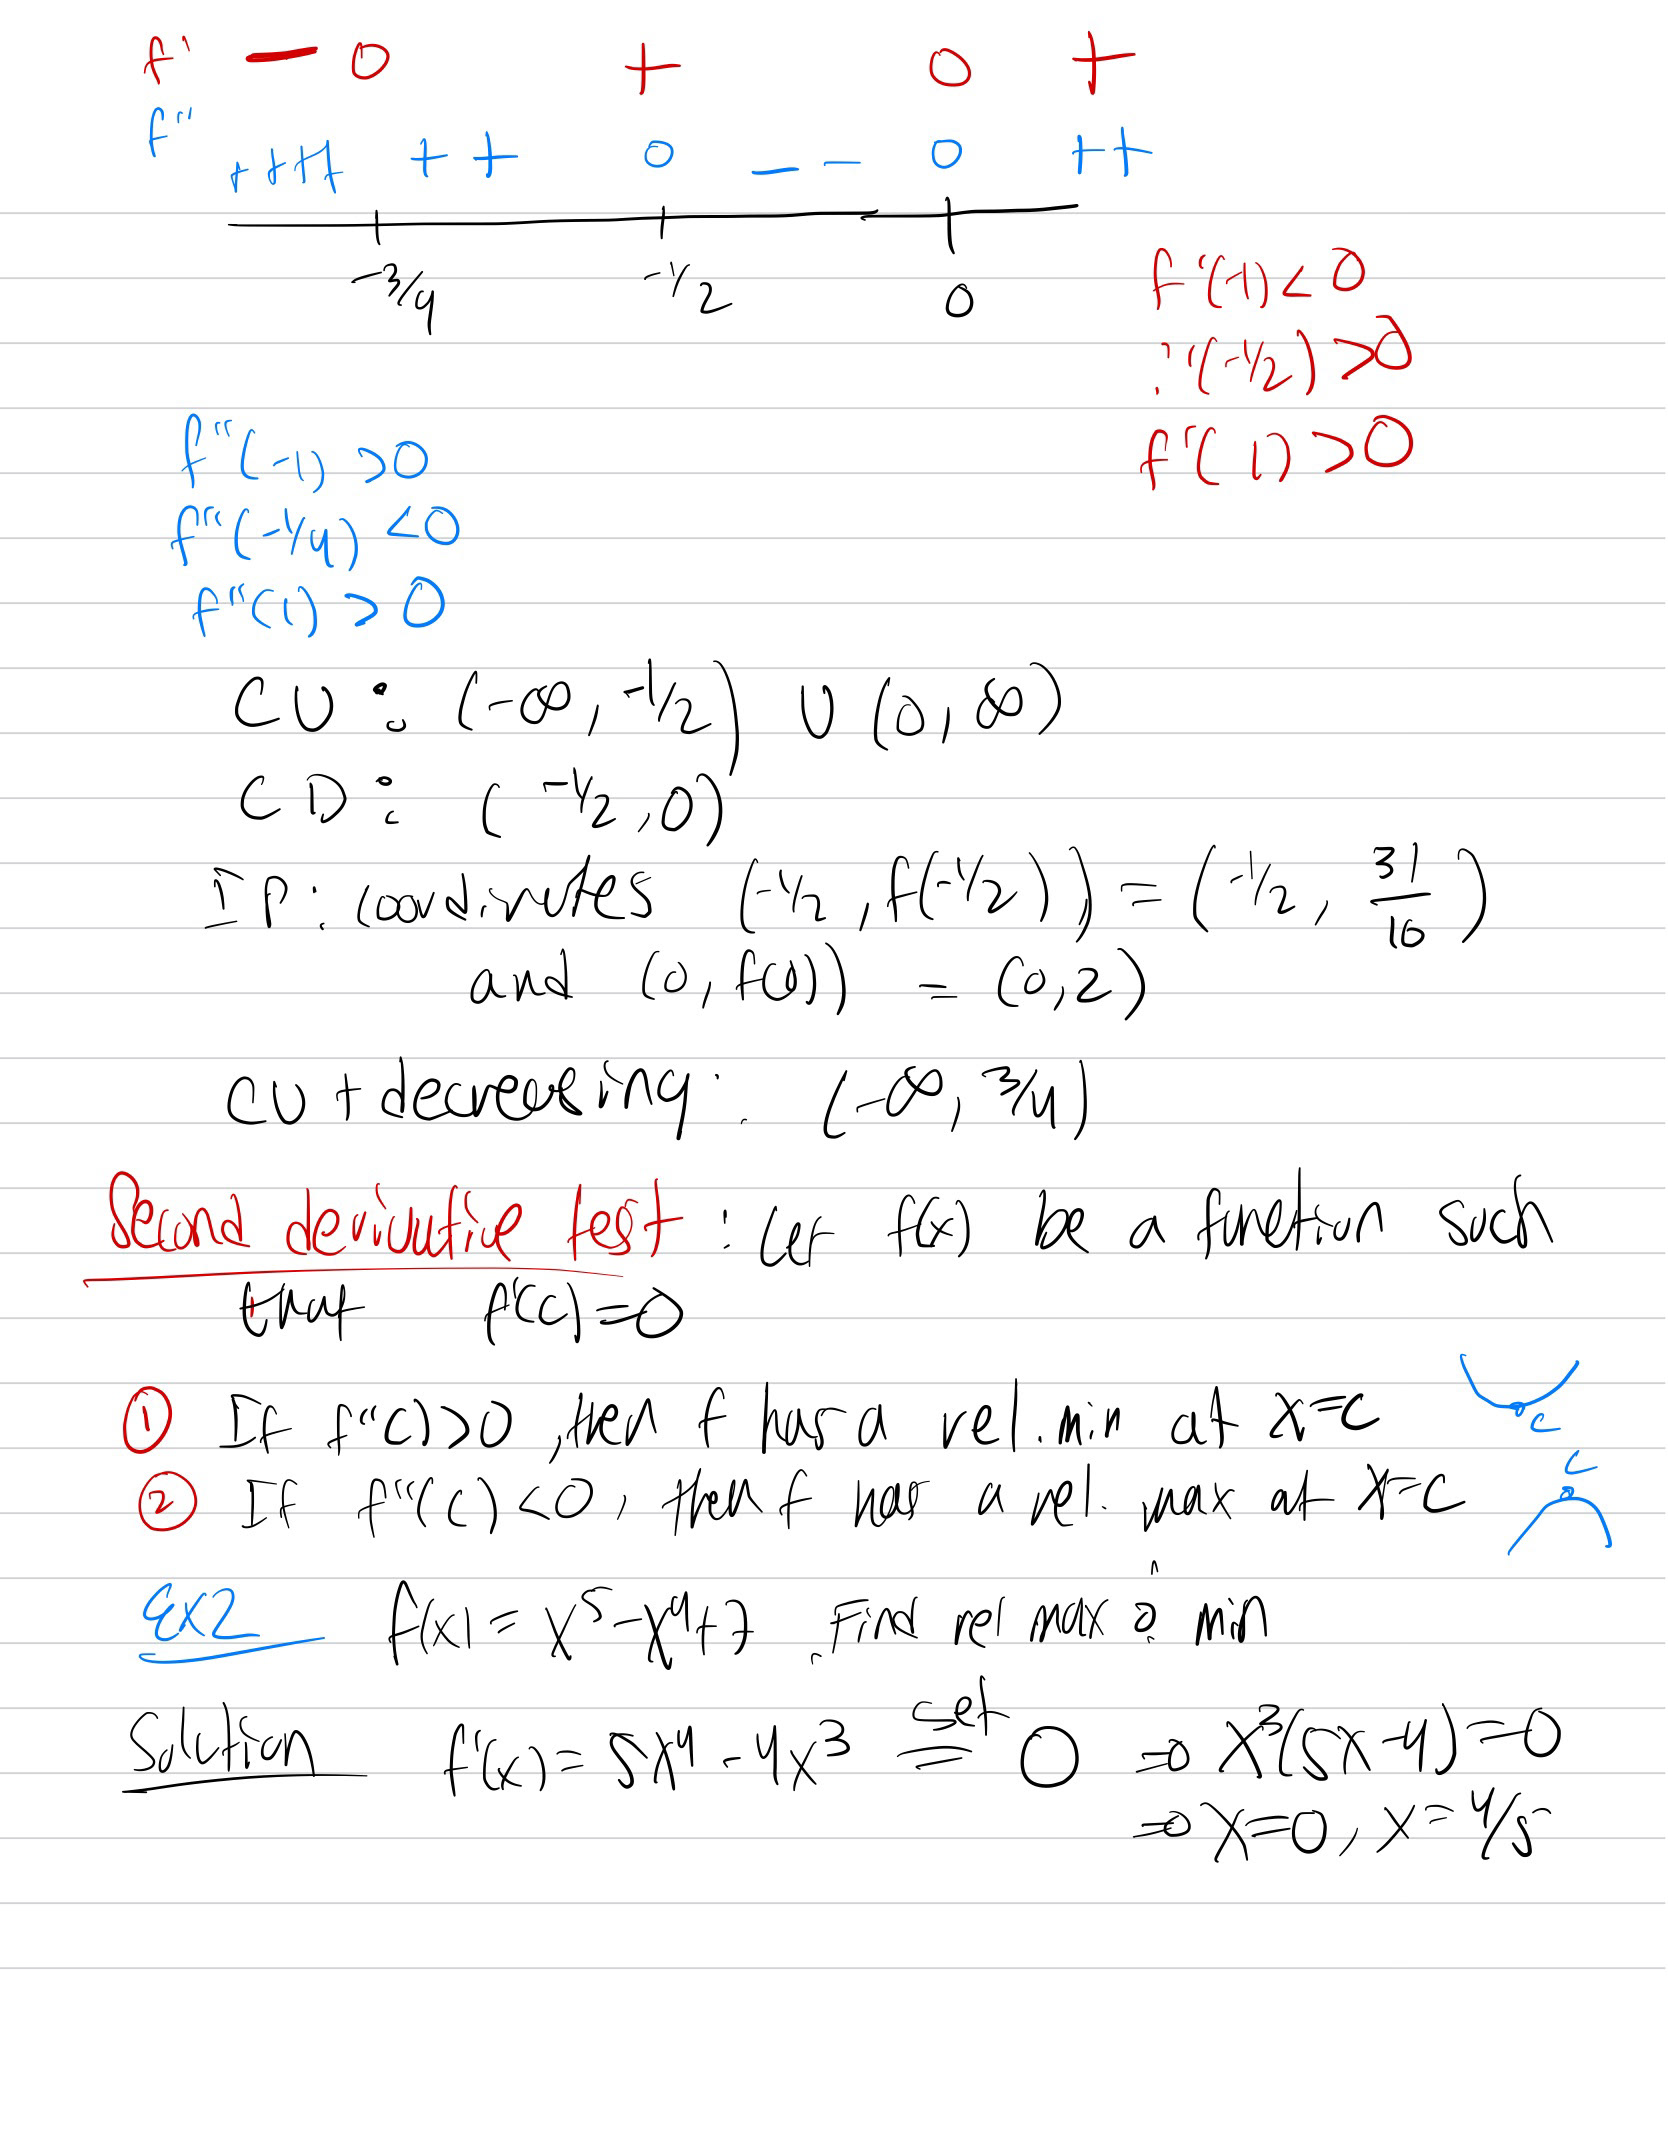 f' — 0 + 0 +
f'' ++++ ++ 0 -- 0 ++
-3/4 -1/2 0
f'(-1) < 0
'(-1/2) > 0
f'(1) > 0
f''(-1) > 0
f''(-1/4) < 0
f''(1) > 0
CU : (-∞, -1/2) U (0, ∞)
CD : (-1/2, 0)
IP : coordinates (-1/2, f(-1/2)) = (-1/2, 31/16)
and (0, f(0)) = (0, 2)
CU + decreasing : (-∞, 3/4)
Second derivative test : Let f(x) be a function such
that f'(c) = 0
① If f''(c) > 0, then f has a rel. min at x = c
c
c
② If f''(c) < 0, then f has a rel. max at x = c
Ex2 f(x) = x⁵ - x⁴ + 7. Find rel max & min
Solution f'(x) = 5x⁴ - 4x³ set = 0 ⇒ x³(5x - 4) = 0
⇒ x = 0, x = 4/5